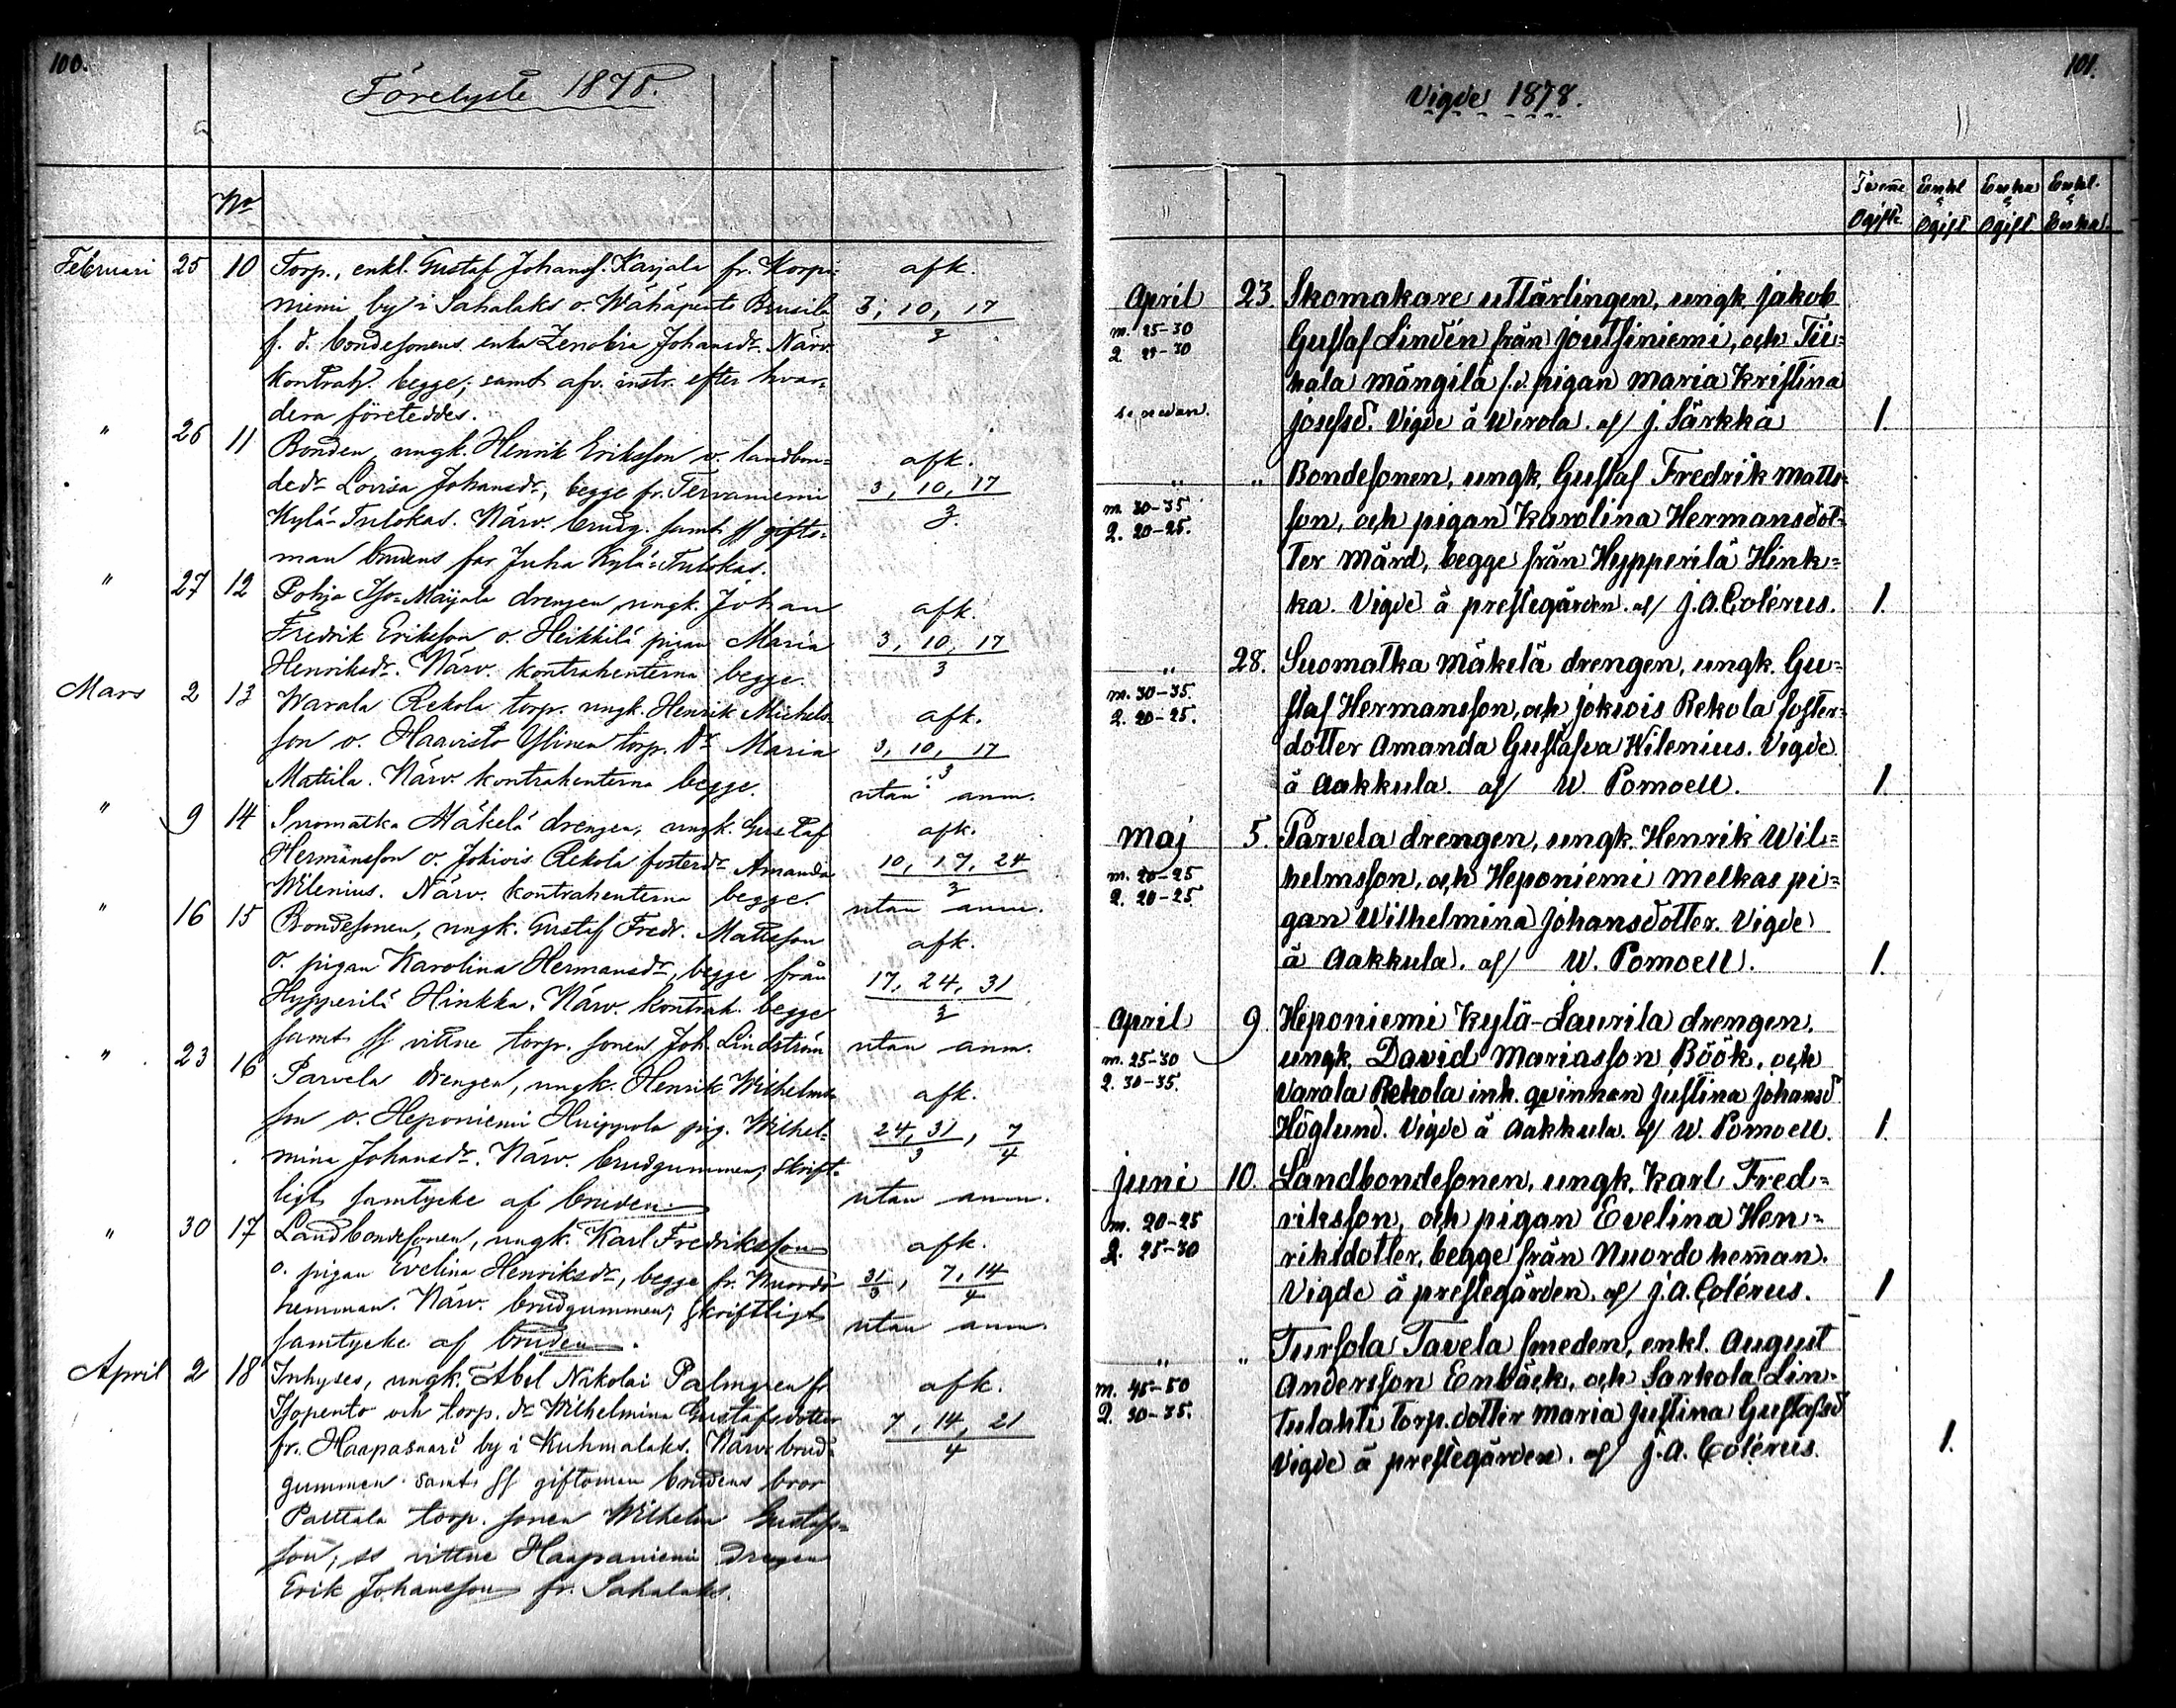 100.
Förelyste 1878.
No
Februari 25 10 Torp., enkl. Gustaf Johanss. Karjala fr. Korpi= afk.
niemi by i Sahalaks o. Wähäpento Brusila 3, 10, 17
f. d. bondesonens enka Zenobia Johansdr. Närv. 3
kontrah. begge; samt afv. instr. efter hvar=
dera företeddes.
" 26 11 Bonden, ungk. Henrik Eriksson o. landbon= afk.
dedr Lovisa Johansdr, begge fr. Tervaniemi 3, 10, 17
Kylä-Tulokas. Närv. brudg. samt ss gifto= 3.
man brudens far Juha Kylä-Tulokas.
" 27 12 Pohja Iso-Maijala drengen, ungk. Johan afk.
Fredrik Eriksson o. Heikkilä pigan Maria 3, 10, 17
Henriksdr. Närv. kontrahenterna begge. 3
Mars 2 13 Warala Rekola torp. ungk. Henrik Michels= afk.
son o. Haavisto Ylinen torp. dr Maria 3, 10, 17
Mattila. Närv. kontrahenterna begge. 3
utan anm.
" 9 14 Suomatka Mäkelä drengen, ungk. Gustaf afk.
Hermansson o. Jokiois Rekola fosterdr Amanda 10, 17, 24
Wilenius. Närv. kontrahenterna begge. 3
utan anm.
" 16 15 Bondesonen, ungk. Gustaf Fredr. Mattsson afk.
o. pigan Karolina Hermansdr, begge från 17, 24, 31
Hypperilä Hinkka. Närv. kontrah. begge 3
samt ss vittne torp. sonen Joh. Lindström utan anm.
" 23 16 Parvela drengen, ungk. Henrik Wilhelms= afk.
son o. Heponiemi Huippola pig. Wilhel= 24, 31, 7
mina Johansdr. Närv. brudgummen; skrift= 3 4
ligt samtycke af bruden. utan anm.
" 30 17 Landbondesonen, ungk. Karl Fredriksson afk.
o. pigan Evelina Henriksdr, begge fr. Nuordo 31, 7, 14
hemman. Närv. brudgummen; skriftligt 3 4
samtycke af bruden. utan anm.
April 2 18 Inhyses, ungk. Abel Nikolai Palmgren fr afk.
Isopento och torp. dr Wilhelmina Gustafsdotter 7, 14, 21
fr. Haapasaari by i Kuhmalaks. Närv. brud= 4
gummen samt ss giftoman brudens bror
Paittala torp. sonen Wilhelm Gustafs=
son, ss vittne Haapaniemi drengen
Erik Johansson fr. Sahalaks.
101.
Vigde 1878.
Tvenne Ogifte Enkl. & Ogift Enka & Ogift Enkl. & Enka
April 23 Skomakare utlärlingen, ungk. Jakob
m. 25-30 Gustaf Lindén från Joutsiniemi, och Tii=
q. 25-30 hala Mängilä f.d. pigan Maria Kristina
Josefsd. Vigde å Uerola. af J. Särkkä 1.
" " Bondesonen, ungk. Gustaf Fredrik Matts=
m. 30-35 son, och pigan Karolina Hermansdot=
q. 20-25. ter Mård, begge från Hypperilä Hink=
ka. Vigde å prestegården. af J. A. Colérus. 1.
" 28. Suomatka Mäkelä drengen, ungk. Gu=
m. 30-35. staf Hermansson, och Jokiois Rekola foster=
q. 20-25. dotter Amanda Gustafva Wilenius. Vigde
å Aakkula. af W. Pomoell. 1.
Maj 5. Parvela drengen, ungk. Henrik Wil=
m. 20-25 helmsson, och Heponiemi Melkas pi=
q. 20-25 gan Wilhelmina Johansdotter. Vigde
å Aakkula. af W. Pomoell. 1.
April 9. Heponiemi Kylä-Laurila drengen,
m. 25-30 ungk. David Mariasson Böök, och
q. 30-35. Varala Rekola inh. qvinnan Justina Johansd
Höglund. Vigde å Aakkula. af W. Pomoell. 1.
Juni 10 Landbondesonen, ungk. Karl Fred=
m. 20-25 riksson, och pigan Evelina Hen=
q. 25-30 riksdotter, begge från Nuordo hemman.
Vigde å prestegården. af J. A. Colérus. 1
" " Tursola Tavela smeden, enkl. August
m. 45-50 Andersson Enbäck, och Sarkola Lin=
q. 30-35. tulahti torp. dotter Maria Justina Gustafsd
Vigde å prestegården. af J. A. Colérus. 1.